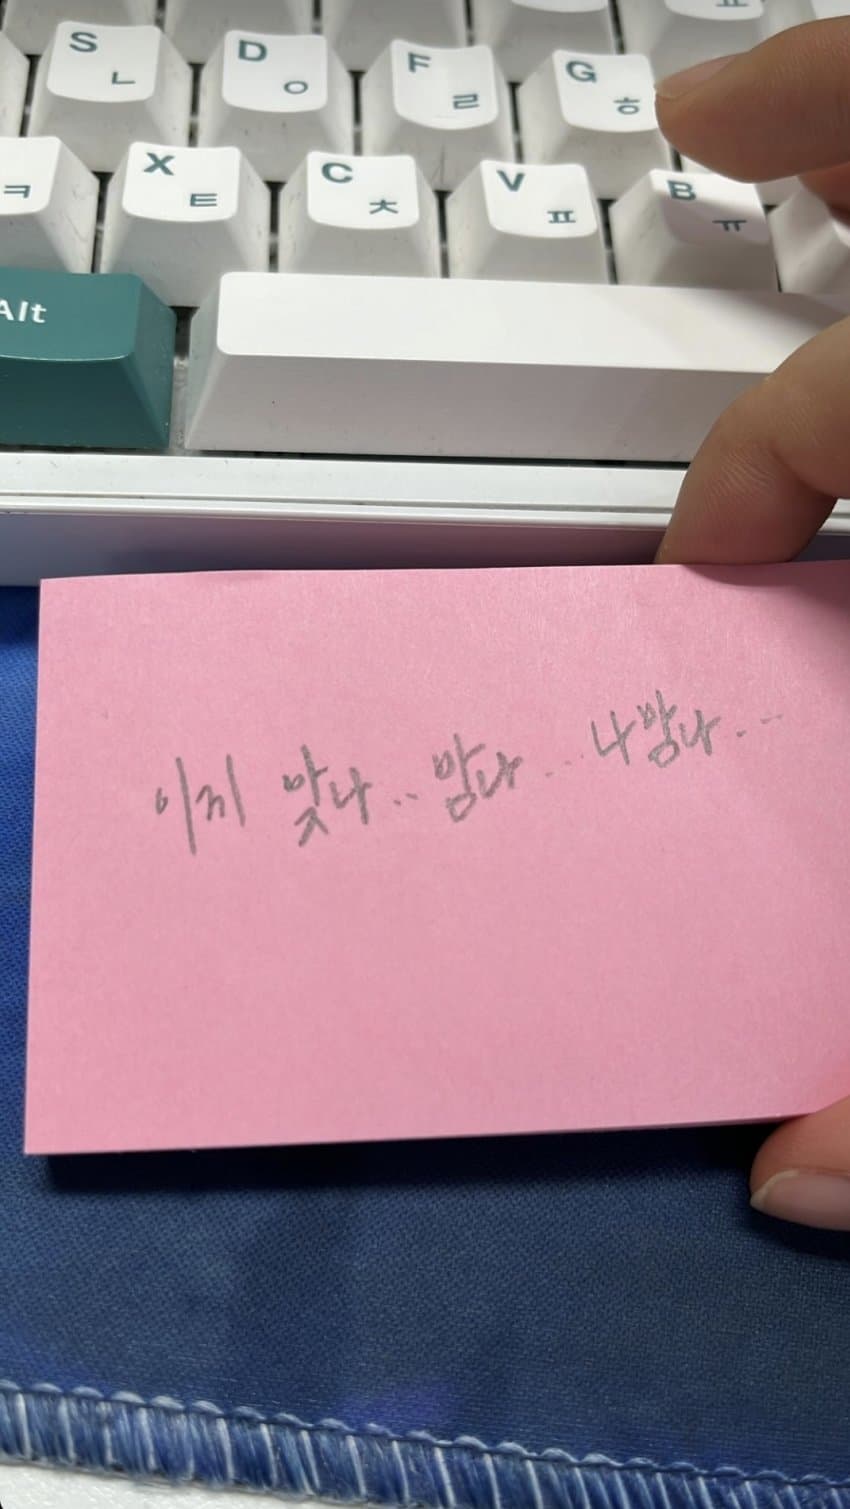 S ㄴ D ㅇ F ㄹ G ㅎ
ㅋ X ㅌ C ㅊ V ㅍ B ㅠ
Alt
이게 맞나.. 맘나... 나맘나...